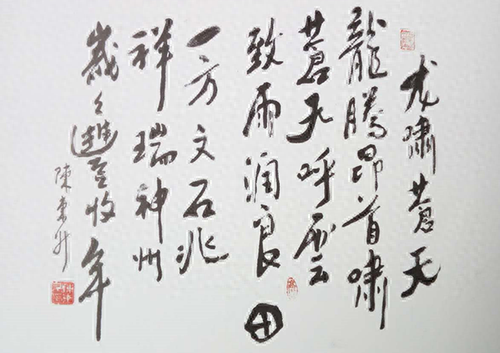 龙嘯蒼天
龍騰昂首嘯
蒼天呼雲
致雨润良田
一方文石兆
祥瑞神州
歲々收年
陳東升